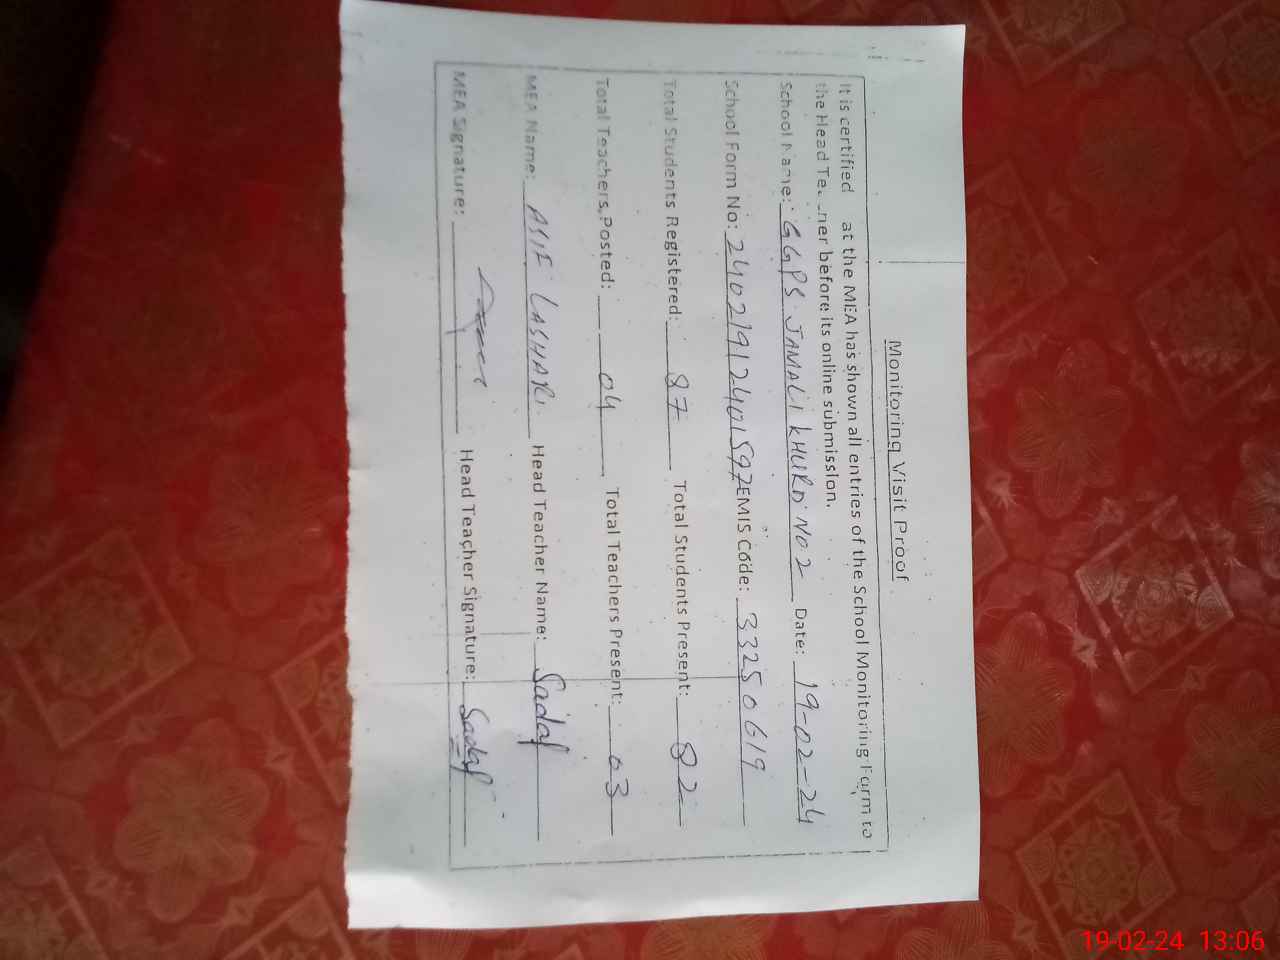 Monitoring Visit Proof
It is certified at the MEA has shown all entries of the School Monitoring Form to
the Head before its online submission.
School Name: GGPS JAMALI KHURD NO 2 Date: 19-02-24
School Form No: 24021912401597 EMIS Code: 33250619
Total Students Registered: 87 Total Students Present: 82
Total Teachers Posted: 04 Total Teachers Present: 03
MEA Name: ASIF LASHARI Head Teacher Name: Sadaf
MEA Signature: Head Teacher Signature: Sadaf
19-02-24 13:06